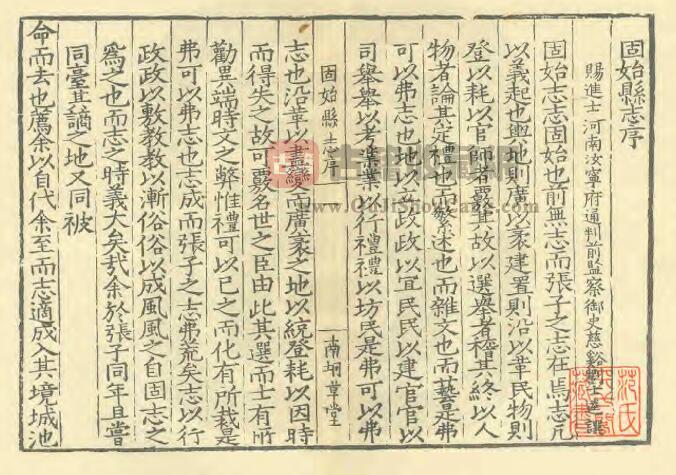 固始縣志序
賜進士河南汝寧府通判前監察御史慈谿劉士逵譔
固始志志固始也前無志而張子之志在焉志凡
以義起也輿地則廣以袤建置則沿以革民物則
登以耗以官師者覈其故以選舉者稽其終以人
物者論其定禮也而繁述也而雜文也而藝是弗
可以弗志也地以立政政以宜民民以建官官以
司舉舉以考業業以行禮禮以坊民是弗可以弗
固始縣志序
南坰草堂
志也沿革以盡變而廣袤之地以統登耗以因時
而得失之故可覈名世之臣由此其選而士有所
勸異端時文之弊惟禮可以已之而化有所裁是
弗可以弗志也志成而張子之志弗荒矣志以行
政政以敷教教以漸俗俗以成風風之自固志之
為之也而志之時義大矣哉余於張子同年且嘗
同臺其謫之地又同被
命而去也薦余以自代余至而志適成入其境城池
范氏
藏書
www.GuJiShuGuan.com